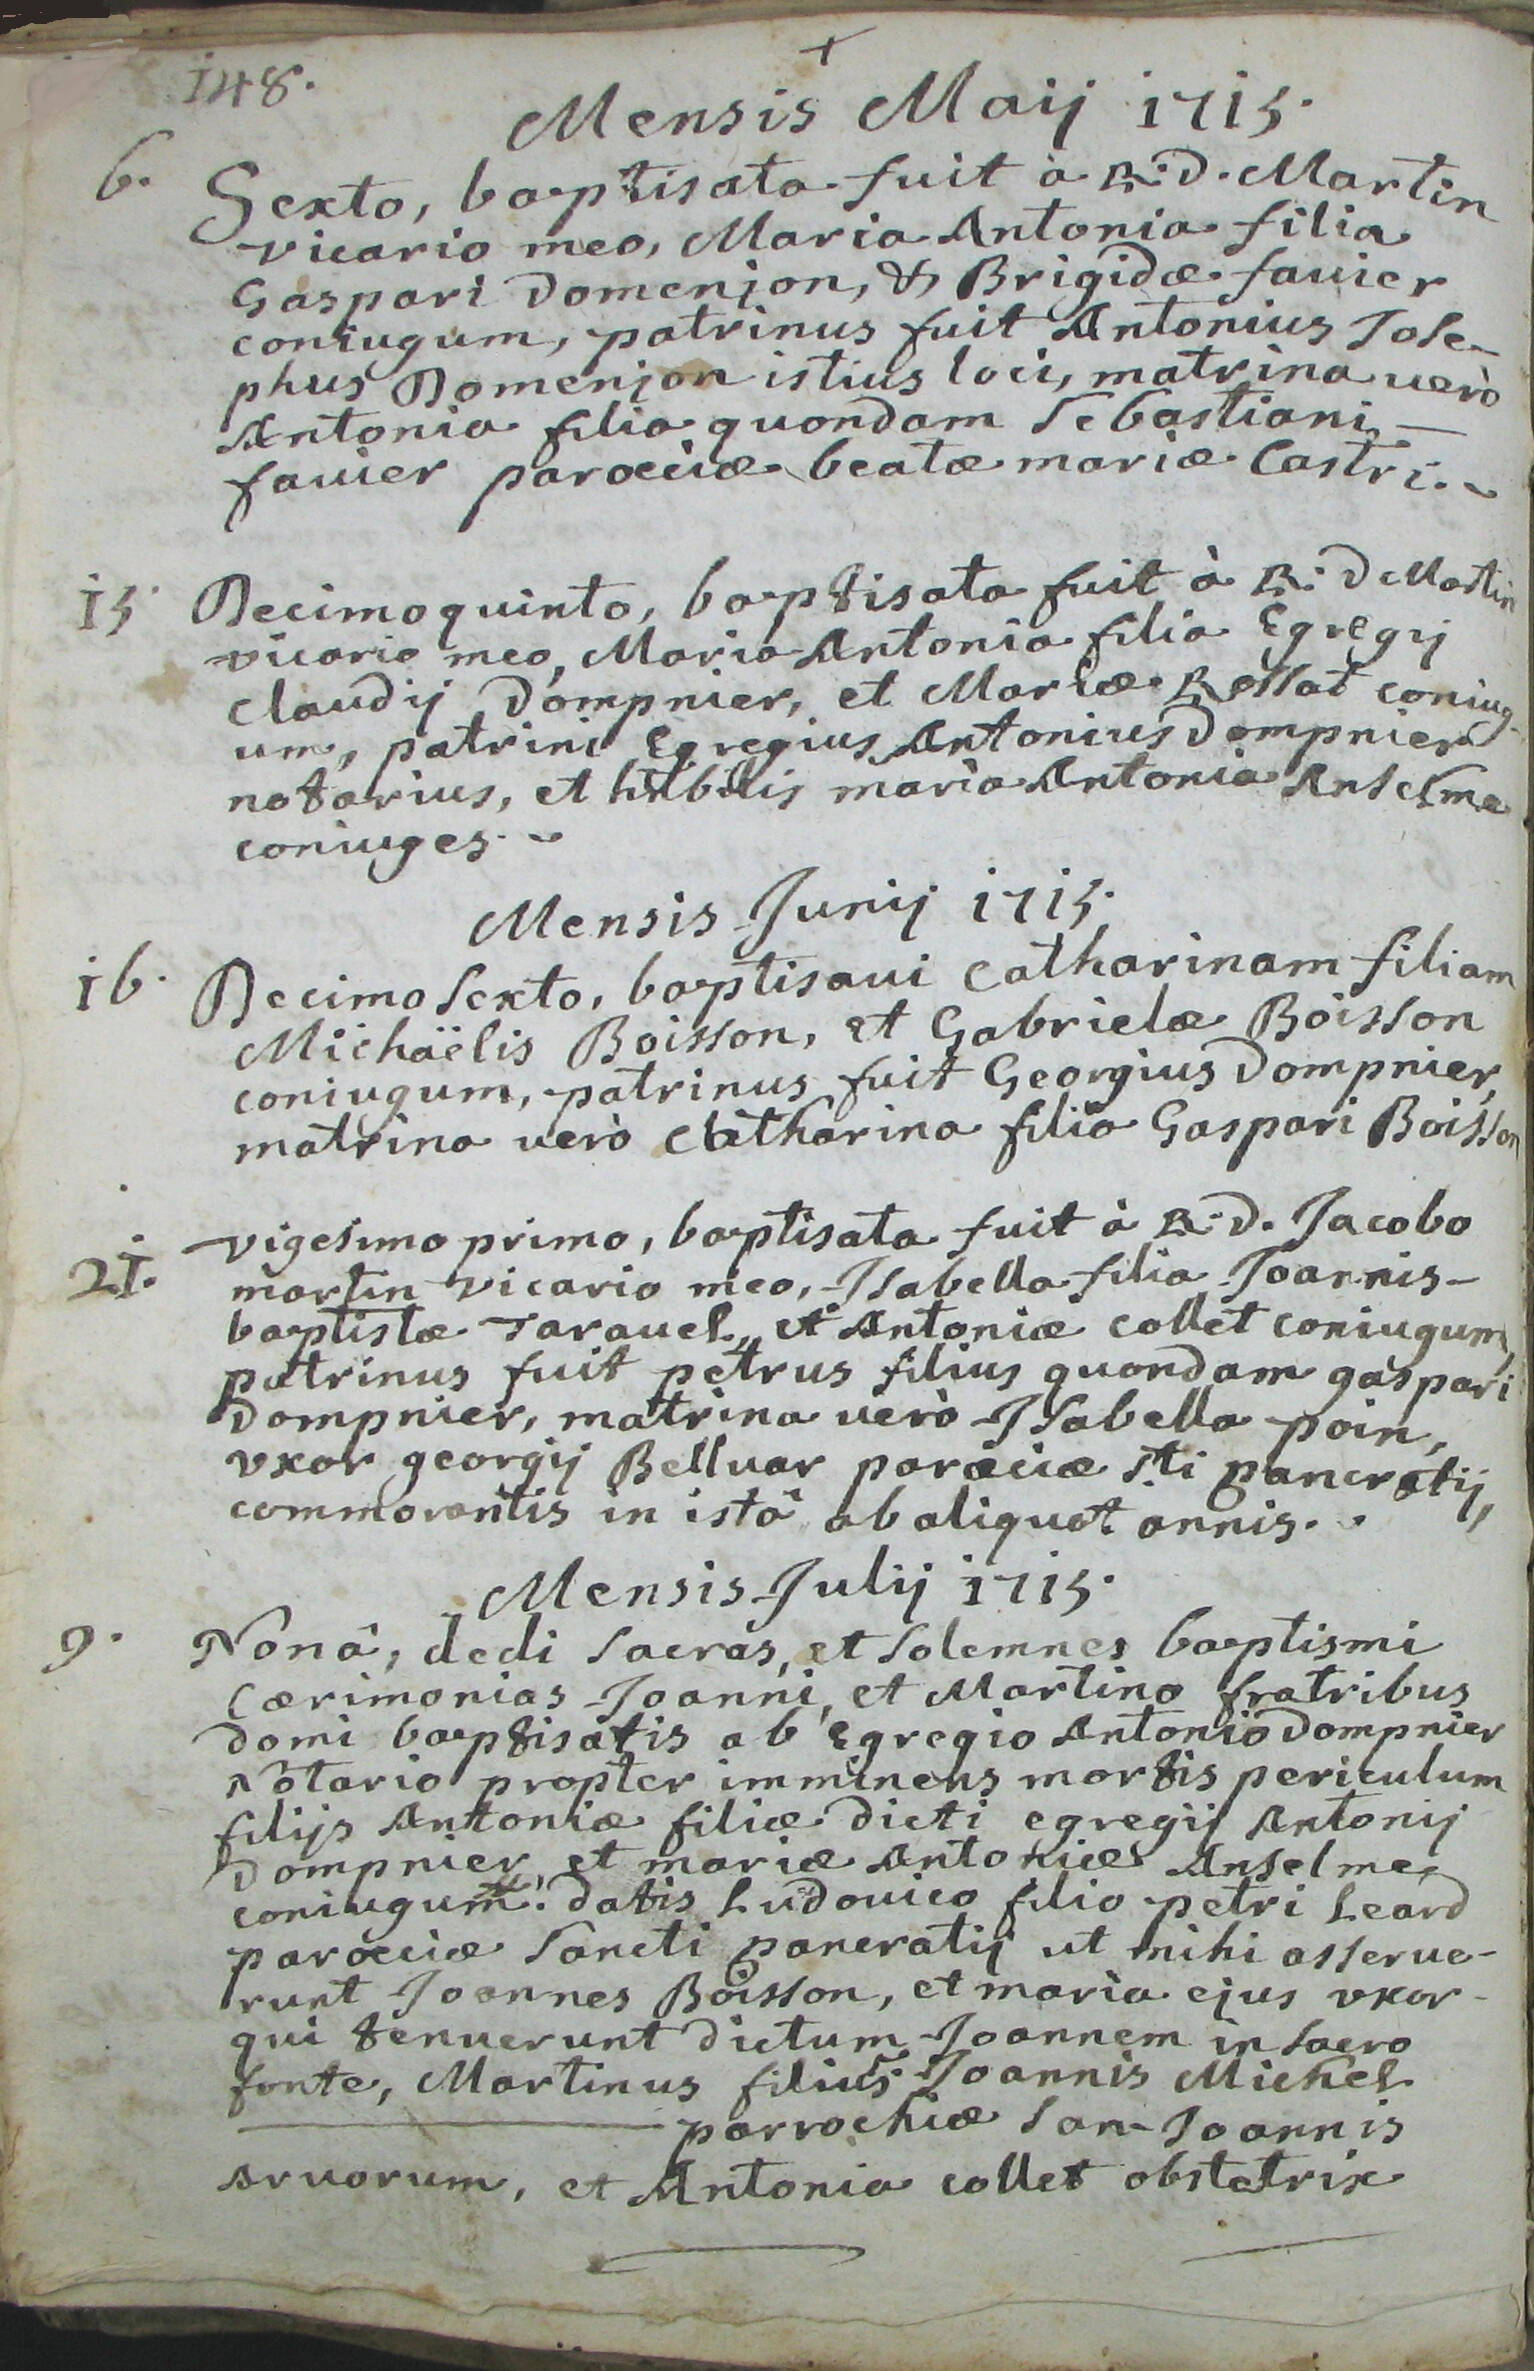 148.
+
Mensis Maij 1715.
6. Sexto, baptisata fuit à R.D. Martin
vicario meo, Maria Antonia filia
Gaspari Domenjon, & Brigidæ favier
coniugum, patrinus fuit Antonius Jose-
phus Domenjon istius loci, matrina verò
Antonia filia quondam Sebastiani —
favier parociæ beatæ mariæ Castri.
15. Decimoquinto, baptisata fuit à R.D Martin
vicario meo, Maria Antonia filia Egregij
Claudij Dompnier, et Mariæ Rossat coniug-
um, patrini Egregius Antonius Dompnier
notarius, et maria Antonia Anselme
coniuges.
Mensis Junij 1715.
16. Decimo Sexto, baptisaui Catharinam filiam
Michäelis Boisson, et Gabrielæ Boisson
coniugum, patrinus fuit Georgius Dompnier,
matrina verò Catharina filia Gaspari Boisson
21. vigesimo primo, baptisata fuit à R.D. Jacobo
martin vicario meo, Isabella filia Joannis-
baptistæ Taravel, et Antoniæ collet coniugum,
patrinus fuit petrus filius quondam gaspari
Dompnier, matrina verò Isabella poin,
vxor georgij Belluar parœciæ sti pancratij,
commorantis in istâ ab aliquot annis.
Mensis Julij 1715.
9. Nonâ, dedi sacras, et solemnes baptismi
Cærimonias Joanni, et Martino fratribus
domi baptisatis ab Egregio Antonio Dompnier
Notario propter imminens mortis periculum
filijs Antoniæ filiæ dicti egregij Antonij
Dompnier, et mariæ Antoniæ Anselme
coniugum. datis Ludovico filio petri Leard
parœciæ Sancti pancratij ut mihi asserue-
runt Joannes Boisson, et maria ejus vxor
qui tenuerunt dictum Joannem in sacro
fonte, Martinus filius Joannis Michel
parrochiæ San-Joannis
Aruarum, et Antonia collet obstetrix